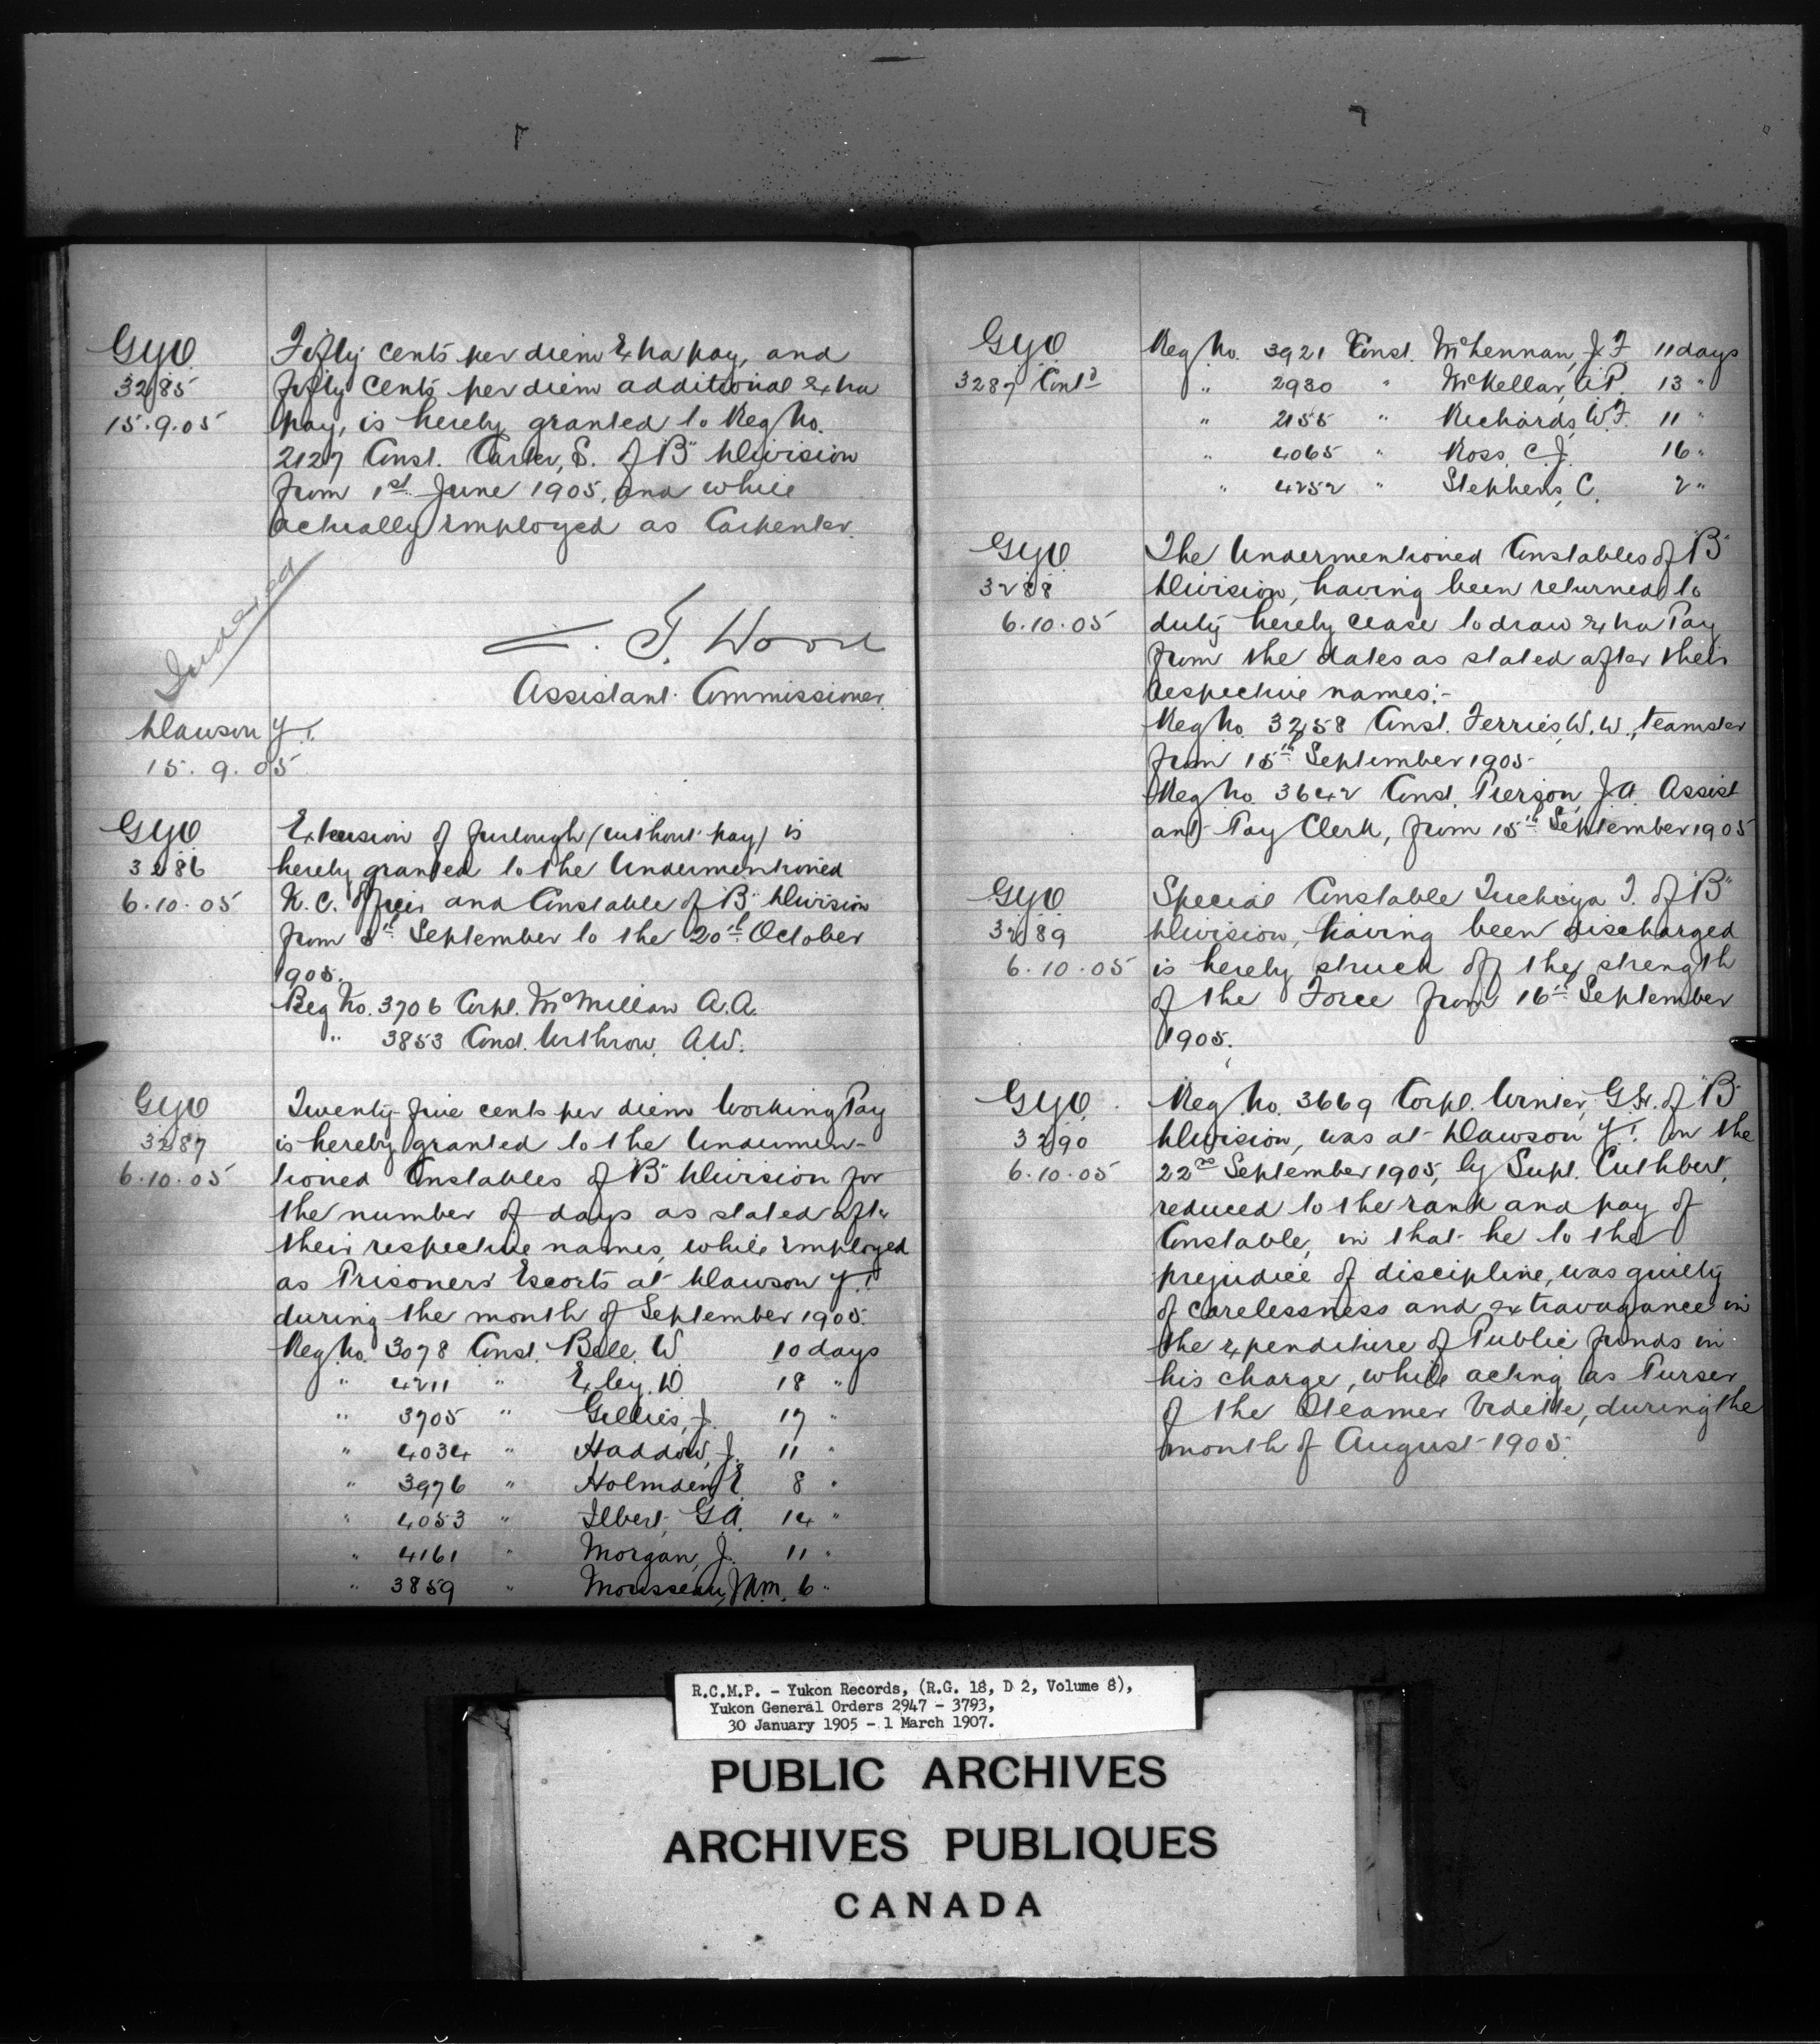 GYO
3285
15.9.05
Fifty cents per diem Extra pay, and
fifty cents per diem additional extra
pay, is hereby granted to Reg No.
2127 Const. Carter, S. of "B" Division
from 1st June 1905, and while
actually employed as Carpenter.
Indexed
Z. T. Wood
Assistant Commissioner.
Dawson Y.T.
15.9.05
GYO
3286
6.10.05
Extension of furlough (without pay) is
hereby granted to the Undermentioned
N.C. Officer and Constable of "B" Division
from September to the 20th October
1905.
Reg No. 3706 Corpl. McMillan A.A.
" 3853 Const. Withrow, A.W.
GYO
3287
6.10.05
Twenty-five cents per diem Working Pay
is hereby granted to the Undermen-
tioned Constables of "B" Division for
the number of days as stated after
their respective names, while Employed
as Prisoners' Escorts at Dawson Y.T.
during the month of September 1905.
Reg No. 3078 Const. Bell, W. 10 days
" 4211 " Exley, D. 18 "
" 3705 " Gillies, J. 17 "
" 4034 " Haddow, J. 11 "
" 3976 " Holmden, E. 8 "
" 4053 " Ilbert, G.A. 14 "
" 4161 " Morgan, J. 11 "
" 3859 " Mousseau, J.M.M. 6 "
GYO
3287 Cont'd
Reg No. 3921 Const. McLennan, J.F. 11 days
" 2930 " McKellar, A.P. 13 "
" 2155 " Richards, W.F. 11 "
" 4065 " Ross, C.J. 16 "
" 4252 " Stephens, C. 2 "
GYO
3288
6.10.05
The Undermentioned Constables of "B"
Division, having been returned to
duty hereby cease to draw extra Pay
from the dates as stated after their
respective names:-
Reg No. 3258 Const. Ferries, W.W., teamster
from 15th September 1905
Reg No. 3642 Const. Pierson, J.A. Assist
ant Pay Clerk, from 15th September 1905
GYO
3289
6.10.05
Special Constable Tuchiya T. of "B"
Division, having been discharged
is hereby struck off the strength
of the Force from 16th September
1905.
GYO
3290
6.10.05
Reg No. 3669 Corpl. Winter, of "B"
Division, was at Dawson Y.T. on the
22nd September 1905, by Supt. Cuthbert,
reduced to the rank and pay of
Constable, in that he to the
prejudice of discipline, was guilty
of carelessness and extravagance in
the expenditure of Public funds in
his charge, while acting as Purser
of the Steamer Vidette, during the
month of August 1905.
R.C.M.P. - Yukon Records, (R.G. 18, D 2, Volume 8),
Yukon General Orders 2947 - 3793,
30 January 1905 - 1 March 1907.
PUBLIC ARCHIVES
ARCHIVES PUBLIQUES
CANADA